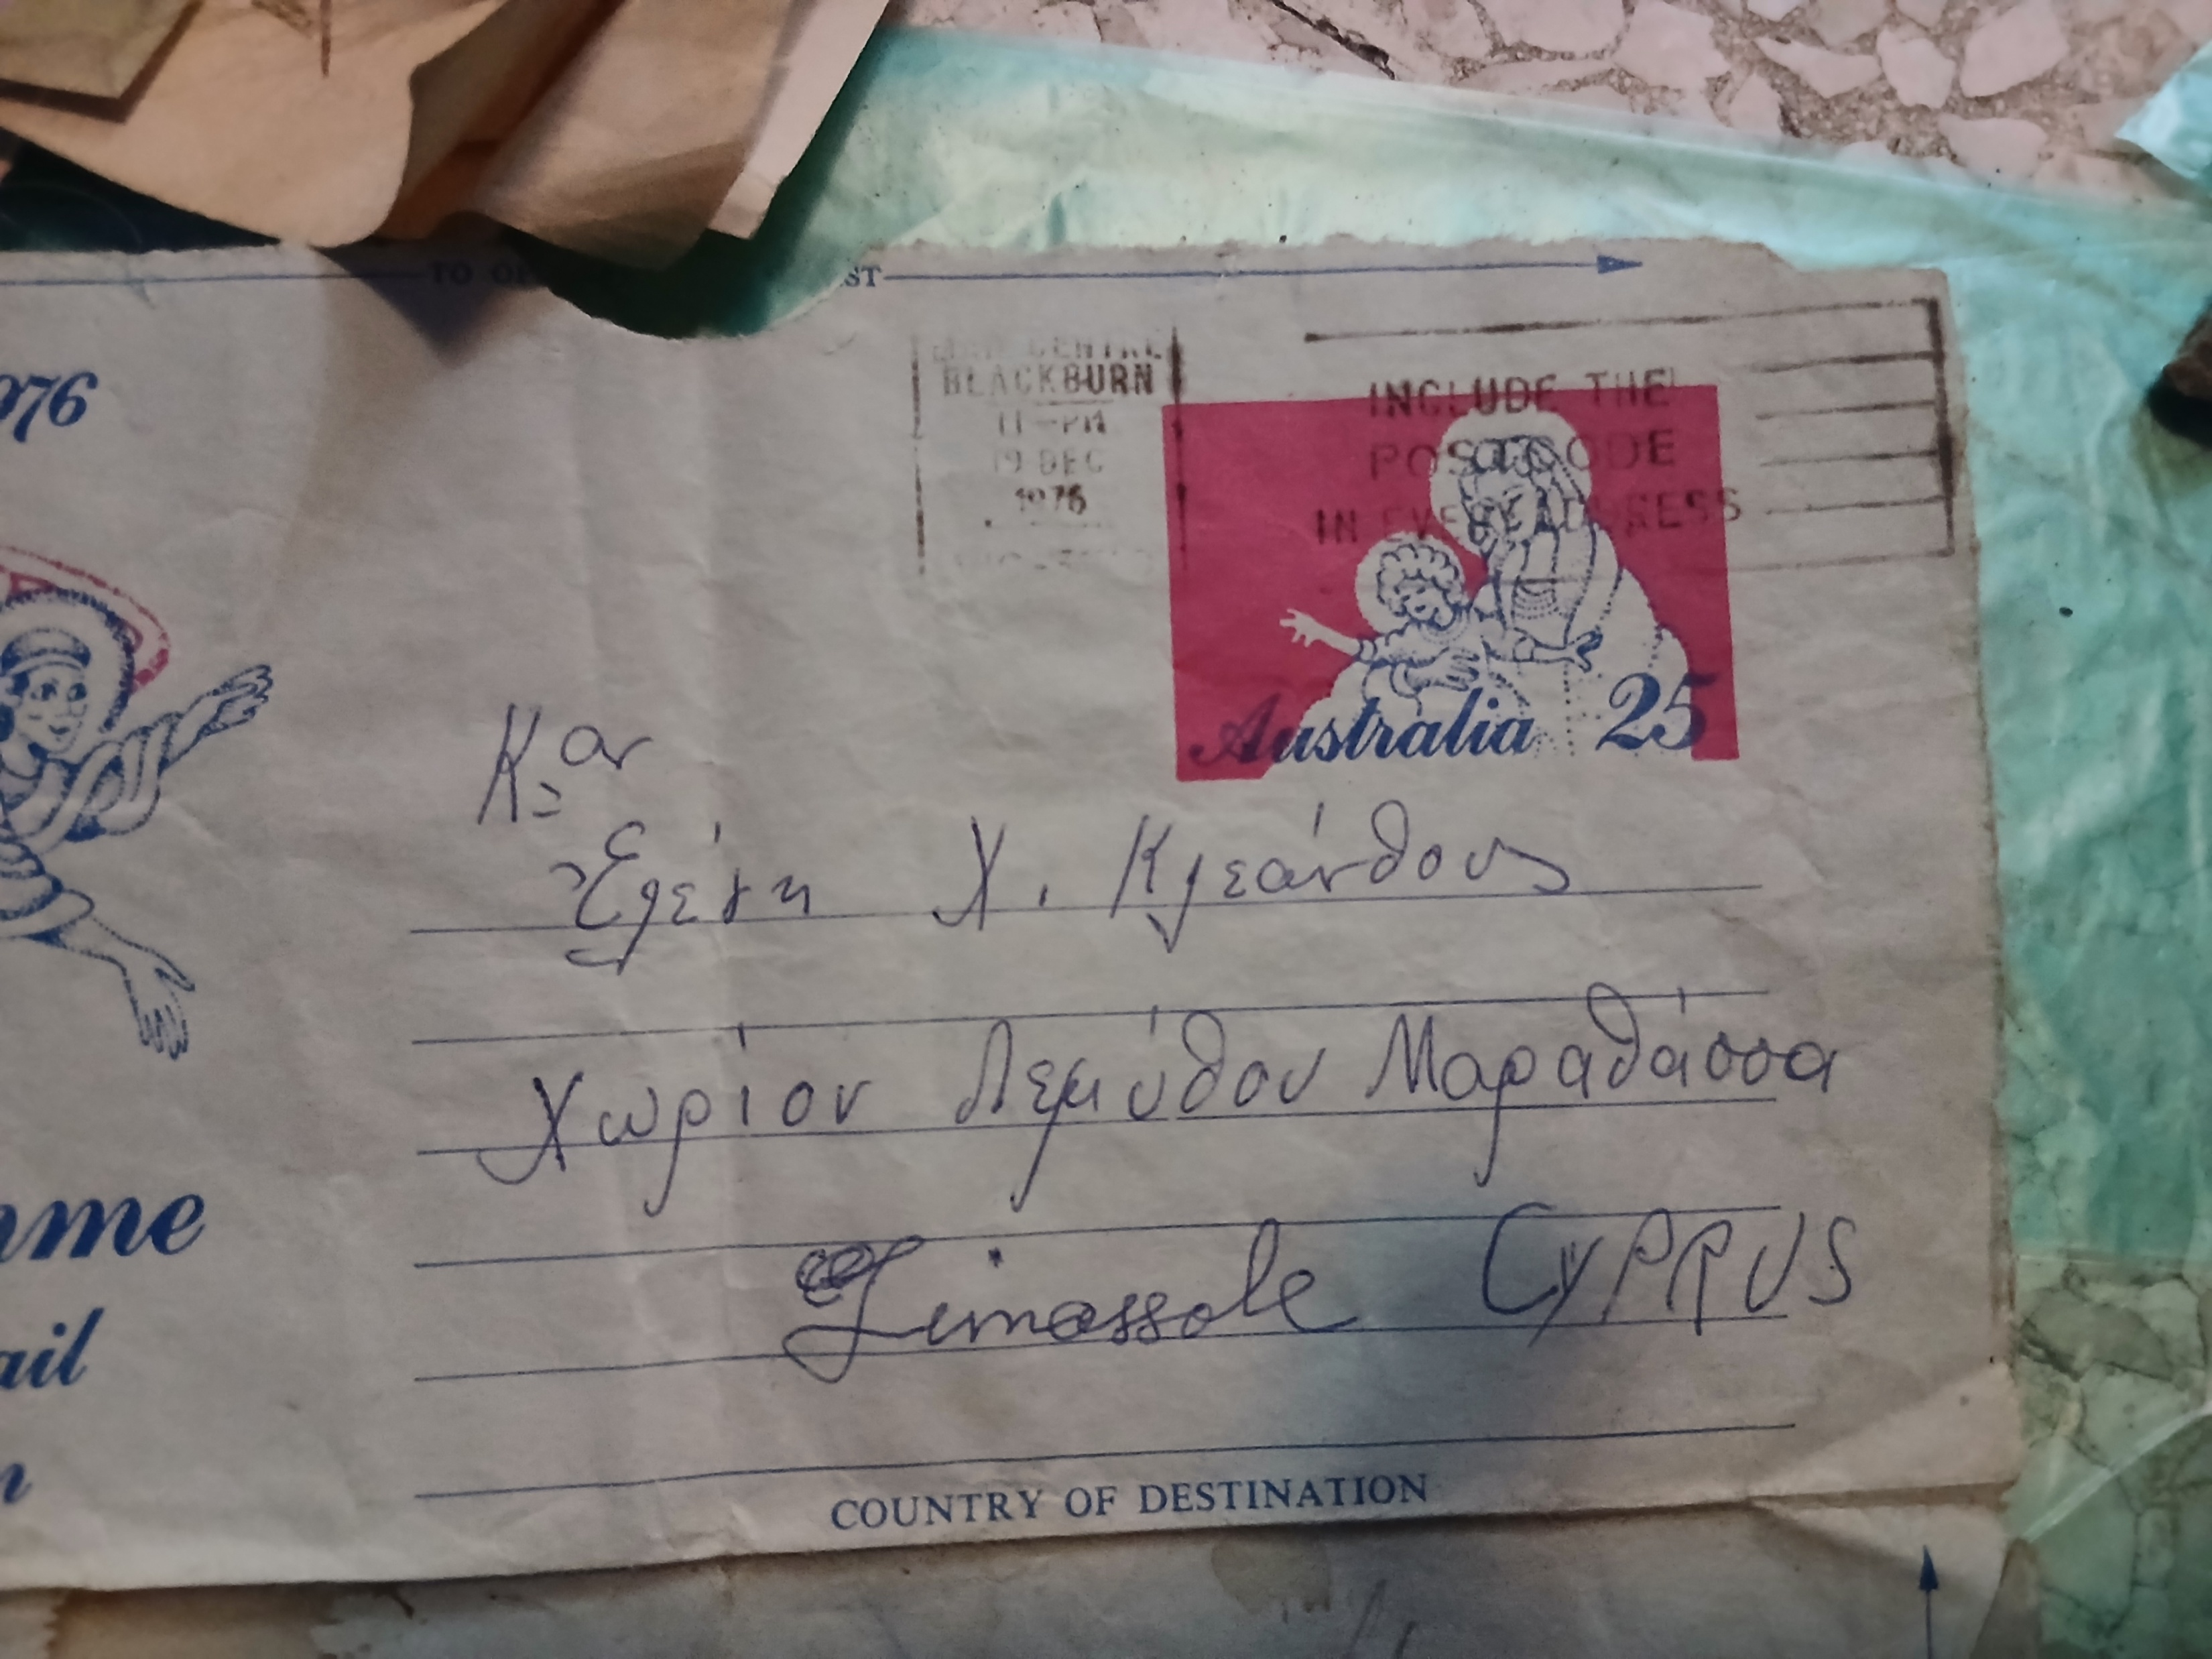 TO O ST
976
MAIL CENTRE
BLACKBURN
11-PM
19 DEC
1976
INCLUDE THE
POSTCODE
IN EVERY ADDRESS
Australia 25
Καν
Ελένη Χ. Κλεάνθους
Χωρίον Λεμύθου Μαραθάσσα
Limassole CYPRUS
mme
ail
n
COUNTRY OF DESTINATION